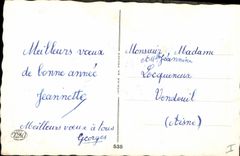 Meilleurs vœux
de bonne année
Jeannette
Meilleurs vœux à tous
Georges
Monsieur Madame
Jeannine
Lecquineur
Vendeuil
(Aisne)
535
I